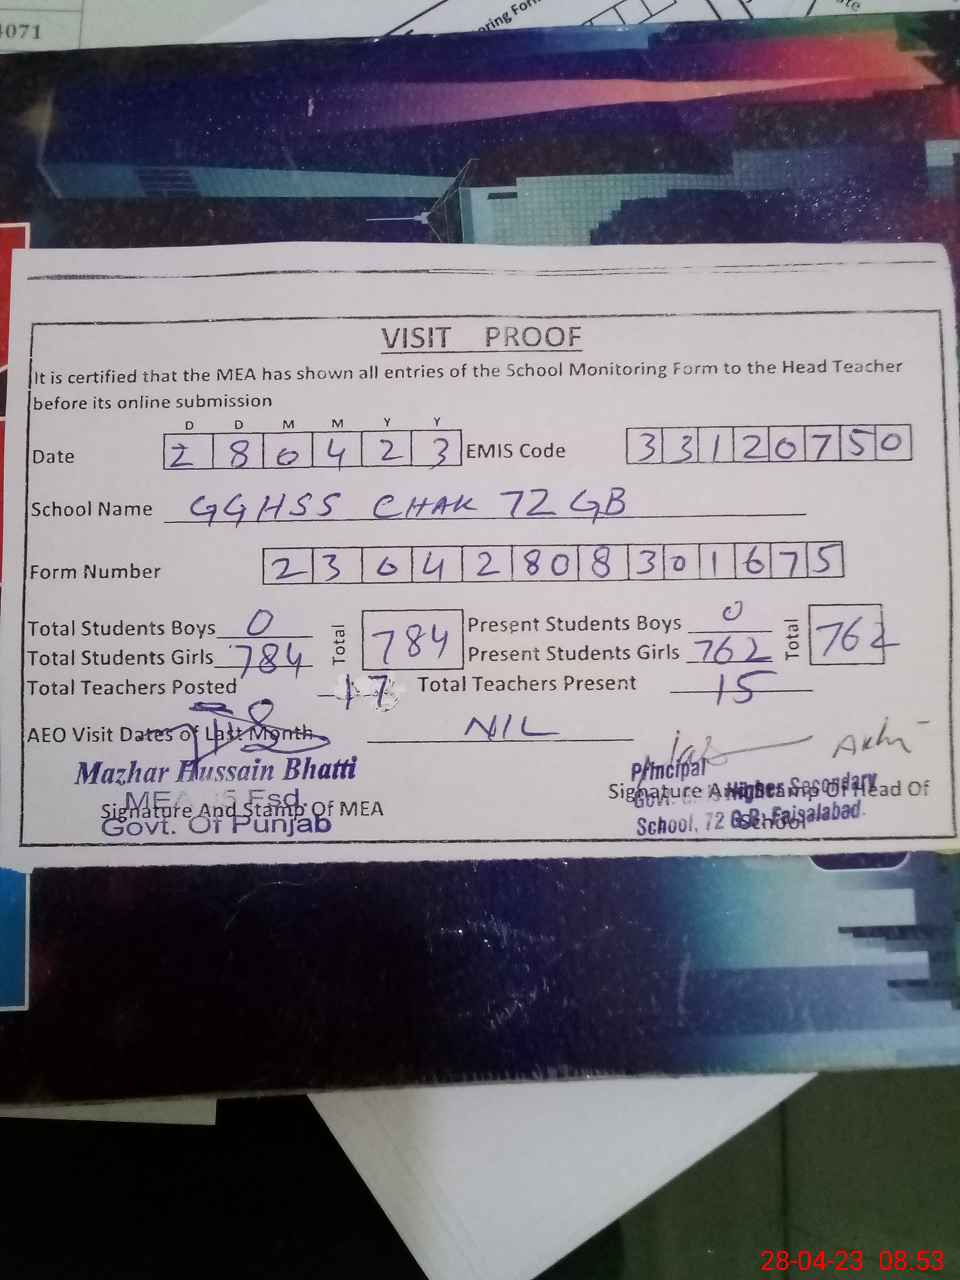 4071
oring For
VISIT PROOF
It is certified that the MEA has shown all entries of the School Monitoring Form to the Head Teacher
before its online submission
D D M M Y Y
Date 2 8 0 4 2 3 EMIS Code 3 3 1 2 0 7 5 0
School Name GGHSS CHAK 72 GB
Form Number 2 3 0 4 2 8 0 8 3 0 1 6 7 5
Total Students Boys 0 Total 784 Present Students Boys 0 Total 762
Total Students Girls 784 Present Students Girls 762
Total Teachers Posted 17 Total Teachers Present 15
AEO Visit Dates of Last Month NIL
Mazhar Hussain Bhatti
MEA Fsd
Signature And Stamp Of MEA
Govt. Of Punjab
Principal
Signature And Stamp Of Head Of
Govt. Higher Secondary
School
School, 72 G.B. Faisalabad.
28-04-23 08.53